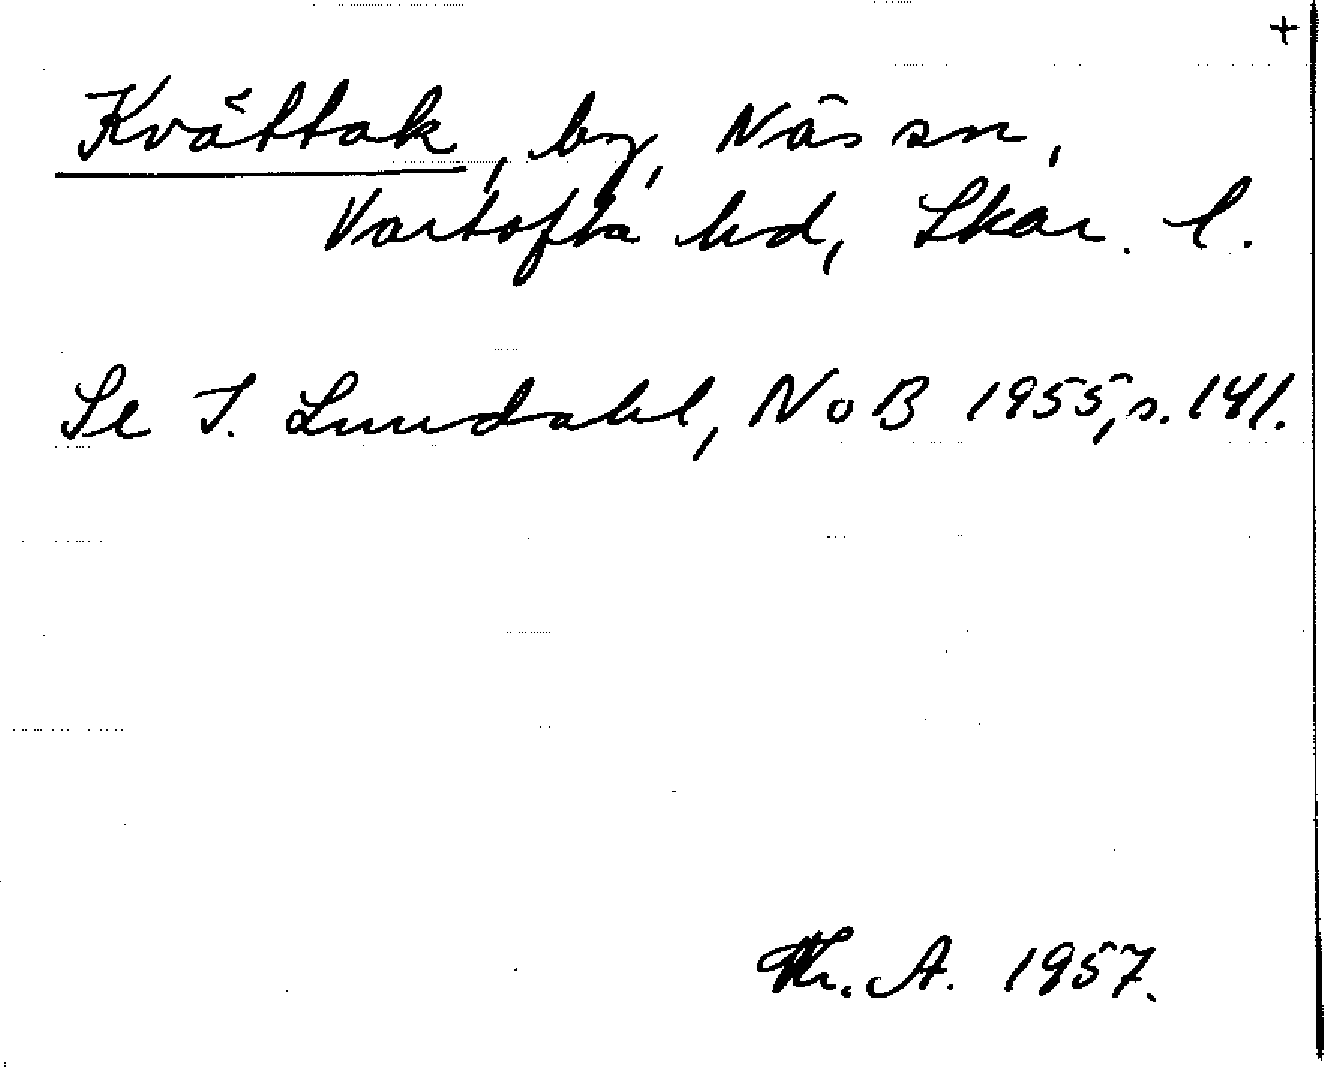 +
Kvättak, by, Näs sn,
Vartofta hd, Skar. l.
Se I. Lundahl, NoB 1955, s. 141.
Th. A. 1957.